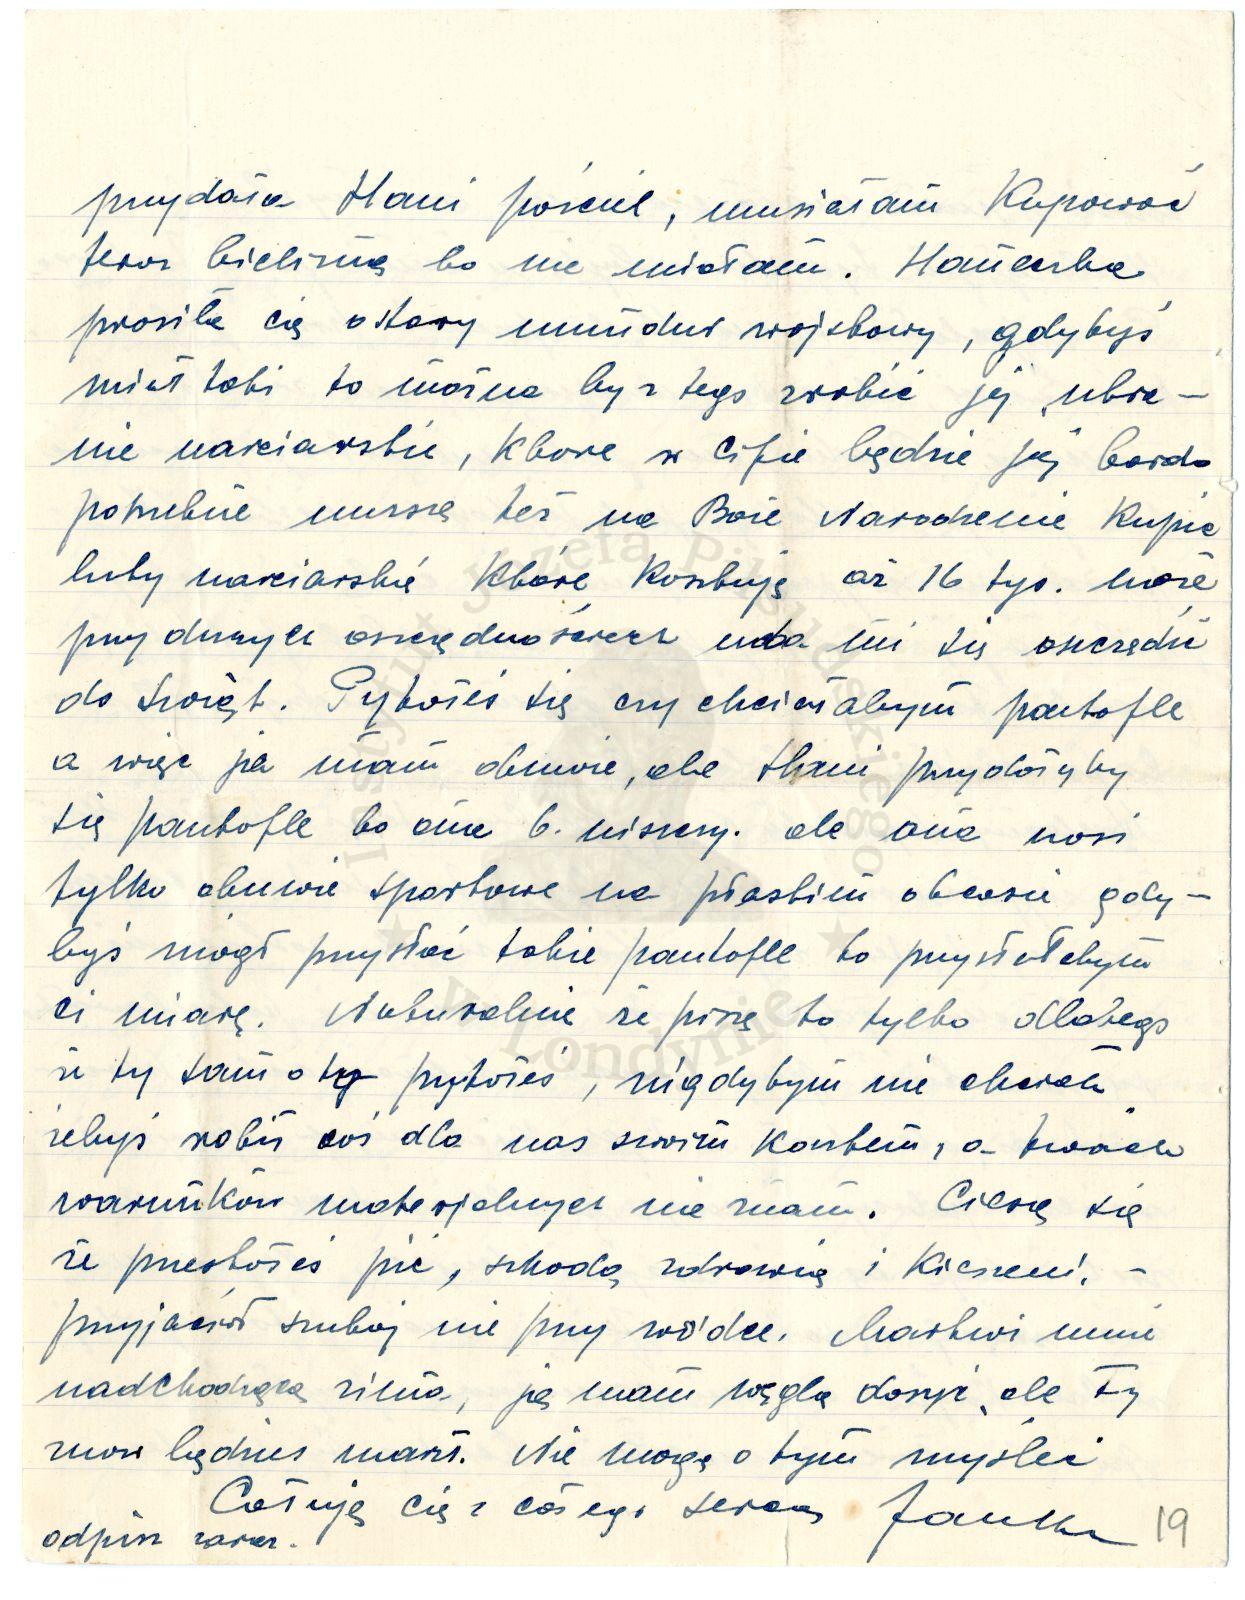 przydała Hani pościel, musiałam kupować
teraz bieliznę bo nie miałam. Haneczka
prosiła cię o stary mundur wojskowy, gdybyś
miał taki to można by z tego zrobić jej ubra-
nie narciarskie, które w Cifie będzie jej bardo
potrzebne muszę też na Boże Narodzenie kupić
buty narciarskie które kosztują aż 16 tys. może
przy dużych oszczędnościach uda mi się oszczędzić
do świąt. Pytałeś się czy chciałabym pantofle
a więc ja mam obuwie, ale Hani przydałyby
się pantofle bo ona b. niszczy. ale ona nosi
tylko obuwie sportowe na płaskim obcasie gdy-
byś mógł przysłać takie pantofle to przysłałabym
ci miarę. Naturalnie że piszę to tylko dlatego
że ty sam o to pytałeś, nigdybym nie chciała
żebyś robił coś dla nas swoim kosztem, a twoich
warunków materjalnych nie znam. Cieszę się
że przestałeś pić, szkoda zdrowia i kieszeni, -
przyjaciół szukaj nie przy wódce. Martwi mnie
nadchodząca zima, ja mam węgla dosyć, ale ty
znow będziesz marzł. Nie mogę o tym myśleć
Całuję cię z całego serca Janka
odpisz zaraz.
19
Instytut Józefa Piłsudskiego
w Londynie